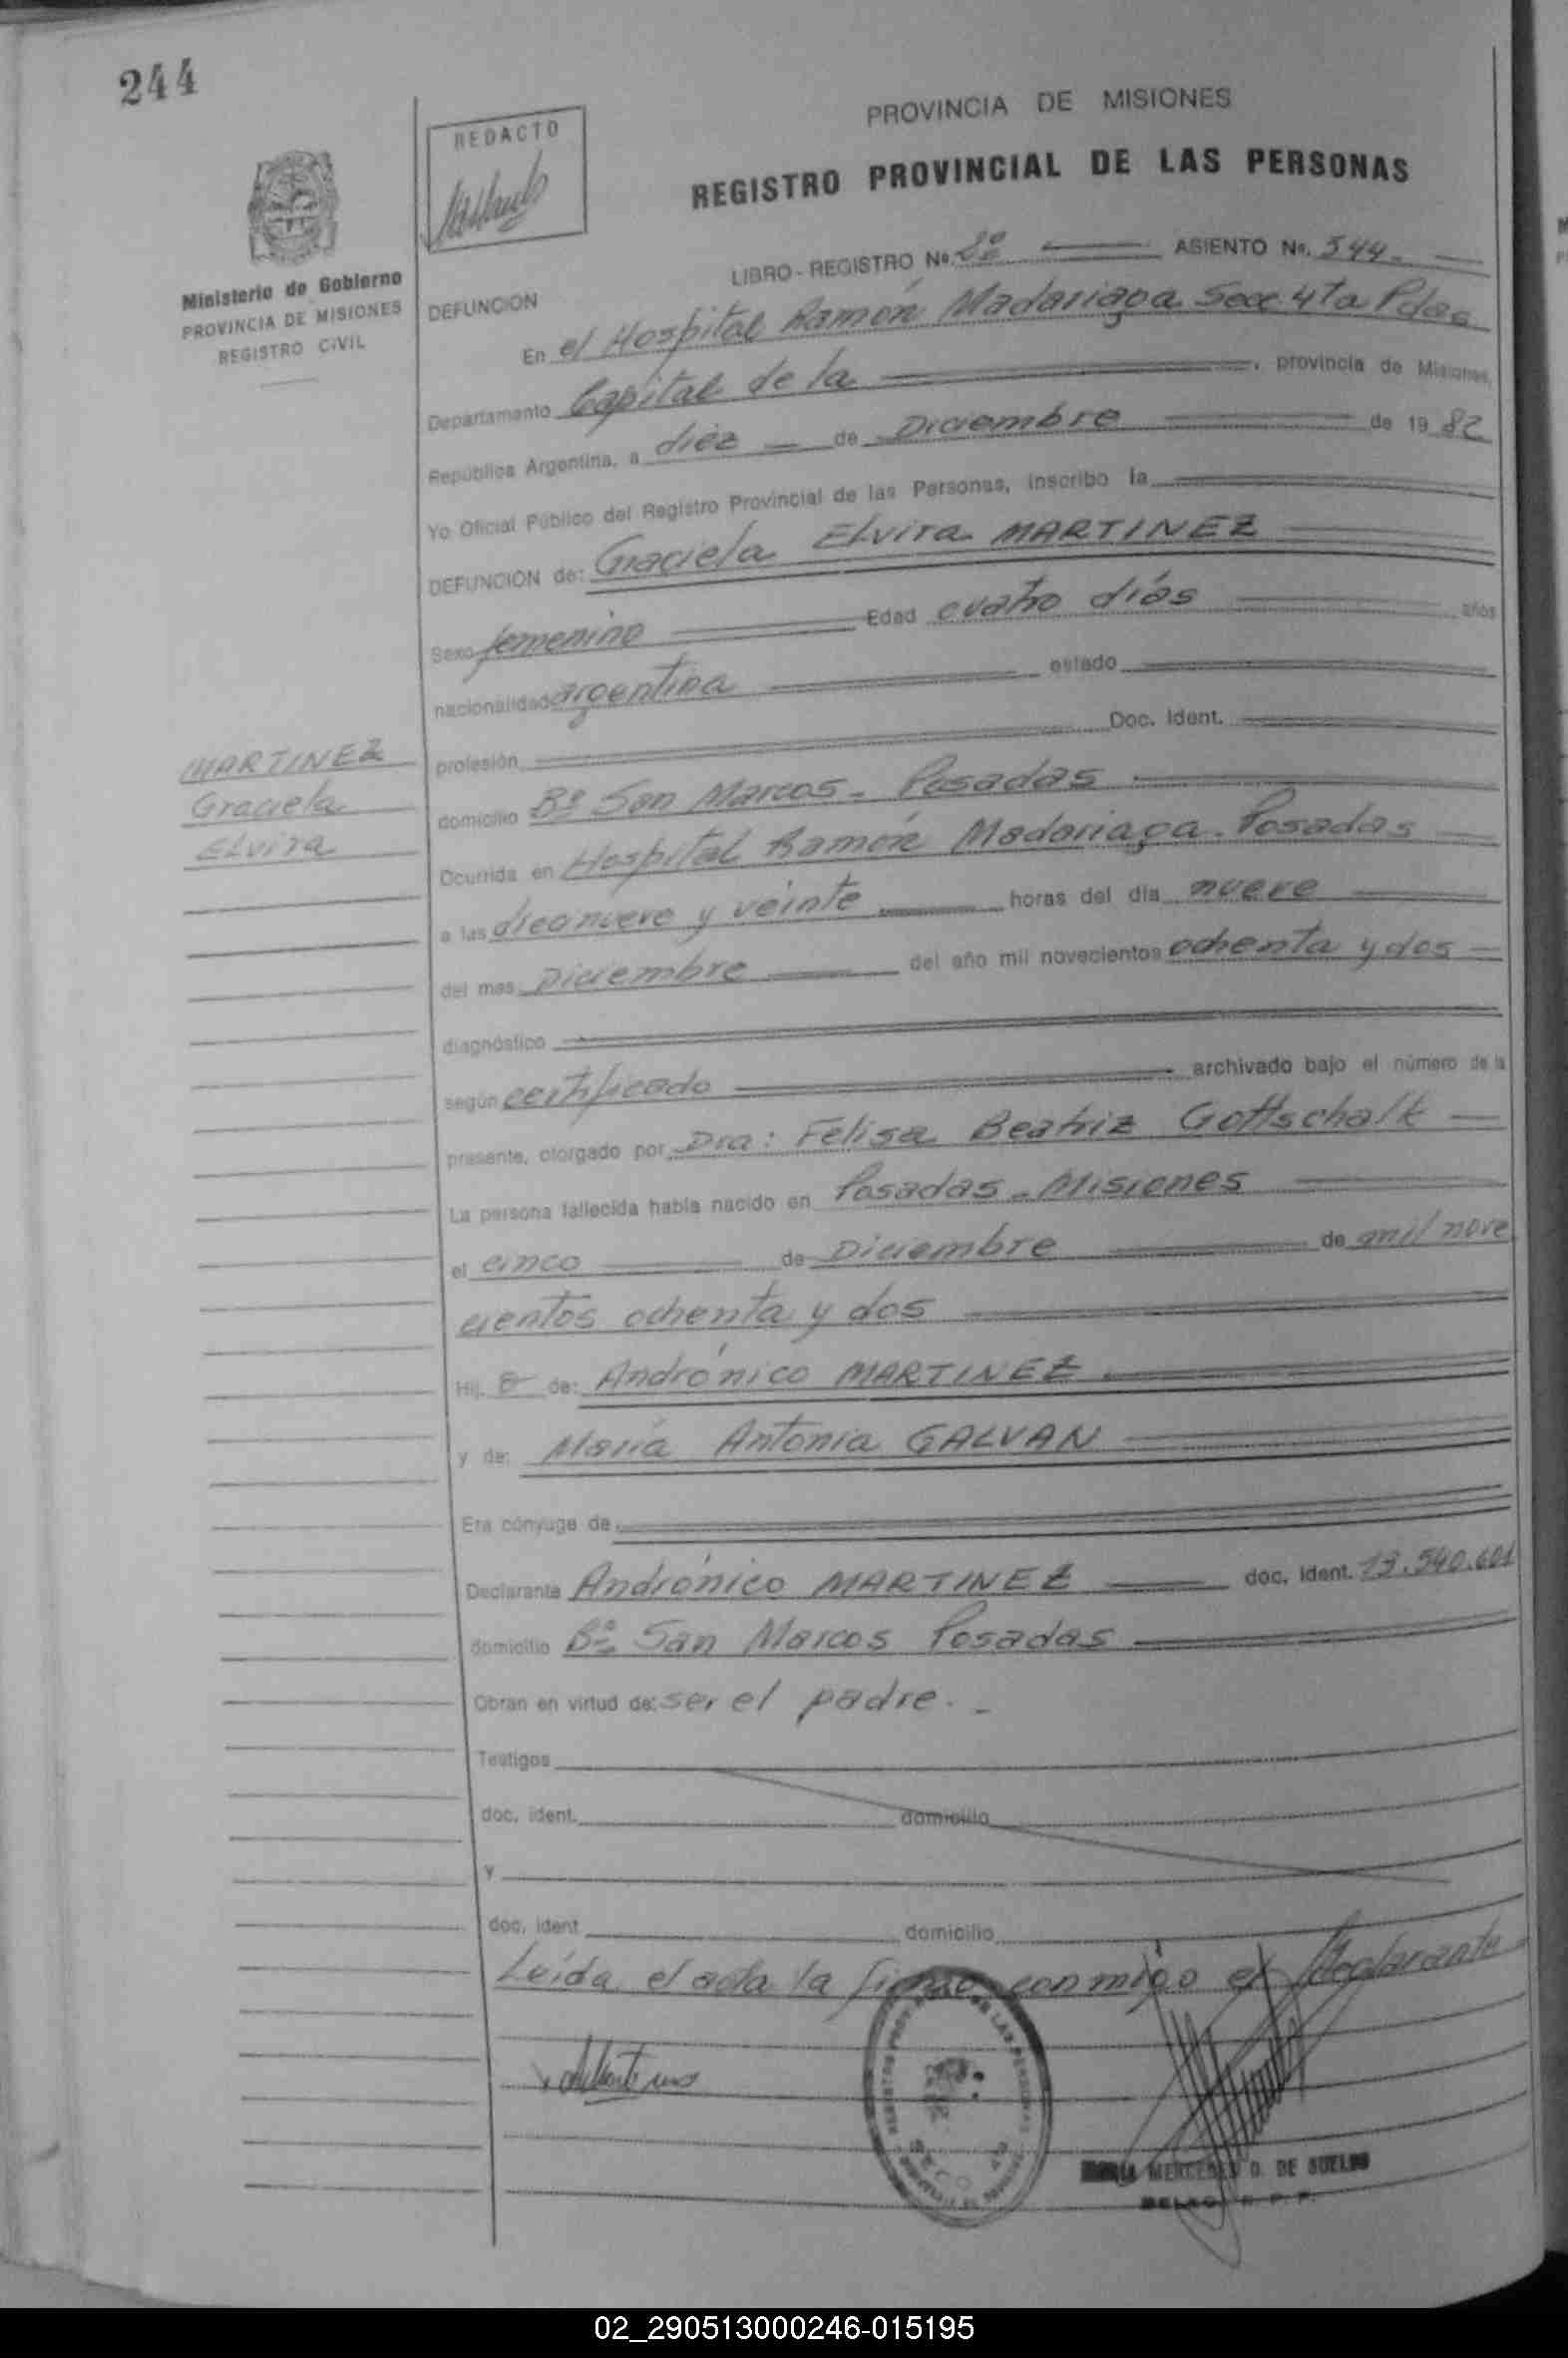 244
REDACTO
PROVINCIA DE MISIONES
REGISTRO PROVINCIAL DE LAS PERSONAS
Ministerio de Gobierno
PROVINCIA DE MISIONES
REGISTRO CIVIL
LIBRO - REGISTRO No. 2º ASIENTO No. 544.
DEFUNCION
En el Hospital Ramón Madariaga Secc. 4ta Pdas
Departamento Capital de la , provincia de Misiones,
República Argentina, a diez de Diciembre de 1982
Yo Oficial Público del Registro Provincial de las Personas, inscribo la
DEFUNCION de: Graciela Elvira MARTINEZ
Sexo femenino Edad cuatro días años
nacionalidad argentina estado
profesión Doc. Ident.
MARTINEZ
Graciela
Elvira
domicilio Bº San Marcos - Posadas
Ocurrida en Hospital Ramón Madariaga - Posadas
a las diecinueve y veinte horas del día nueve
del mes Diciembre del año mil novecientos ochenta y dos
diagnóstico
según certificado archivado bajo el número de la
presente, otorgado por Dra: Felisa Beatriz Gottschalk
La persona fallecida había nacido en Posadas - Misiones
el cinco de Diciembre de mil nove
cientos ochenta y dos
Hij a de: Andrónico MARTINEZ
y de: María Antonia GALVAN
Era cónyuge de
Declarante Andrónico MARTINEZ doc. ident. 13.540.601
domicilio Bº San Marcos Posadas
Obran en virtud de: ser el padre. -
Testigos
doc. ident. domicilio
y
doc. ident domicilio
Leída el acta la firma conmigo el declarante
MARIA MERCEDES D. DE SUELDO
02_290513000246-015195